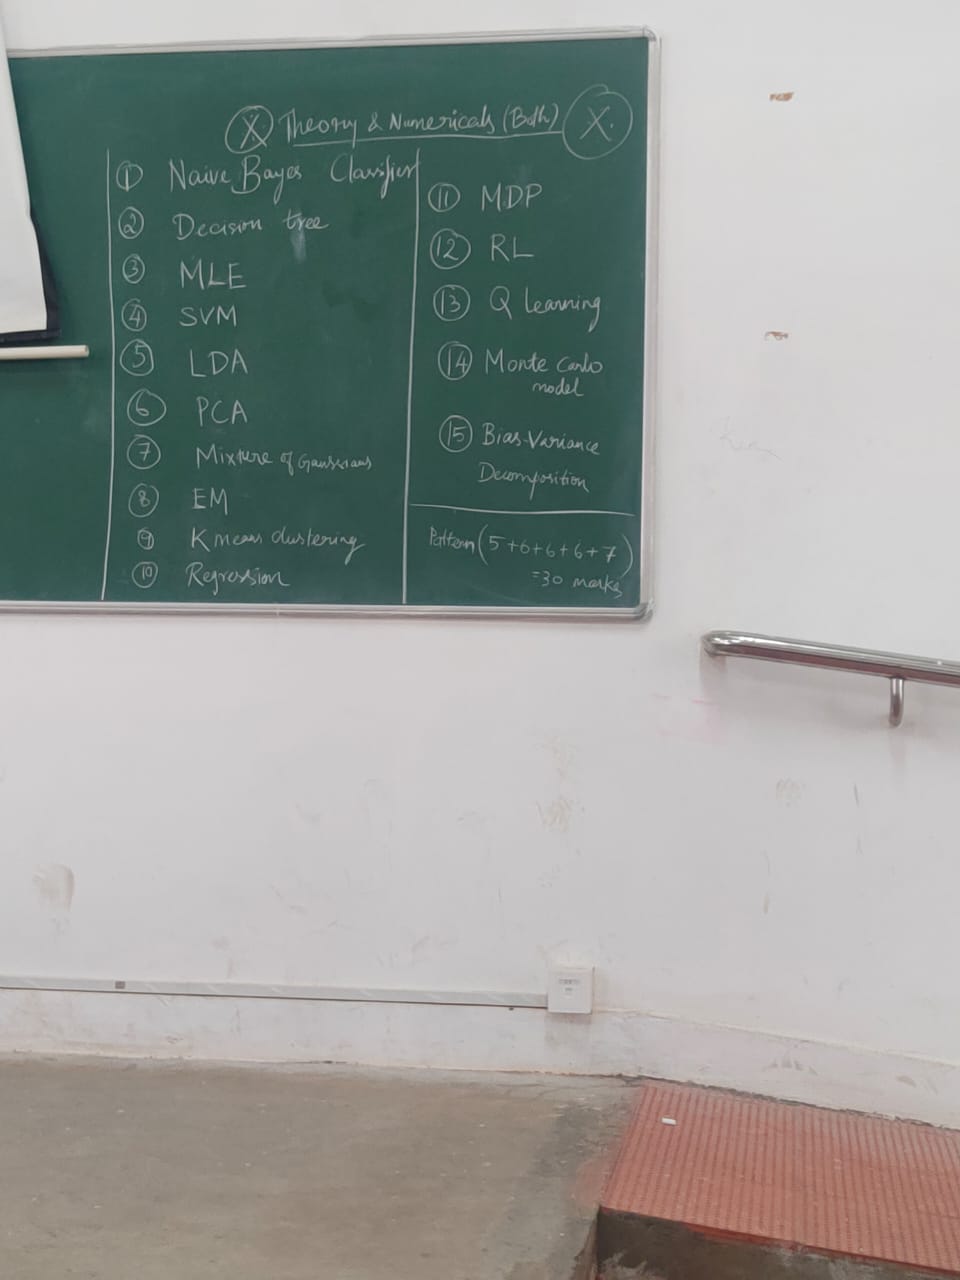 X Theory & Numericals (Both) X.
1 Naive Bayes Classifier
2 Decision tree
3 MLE
4 SVM
5 LDA
6 PCA
7 Mixture of Gaussians
8 EM
9 K means clustering
10 Regression
11 MDP
12 RL
13 Q learning
14 Monte Carlo
model
15 Bias-Variance
Decomposition
Pattern (5+6+6+6+7)
=30 marks